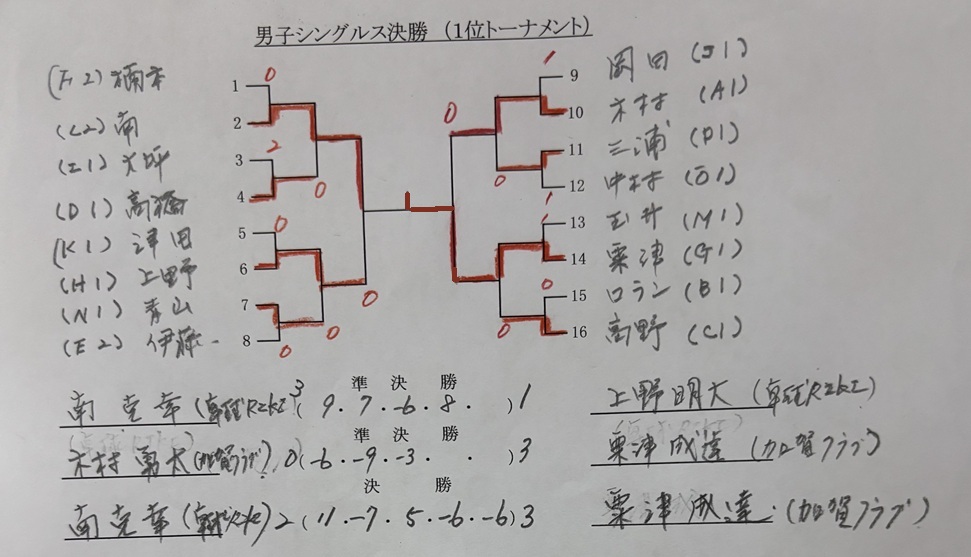 男子シングルス決勝 (1位トーナメント)
(F2) 楠木 1 0
(L2) 南 2
(I1) 大坪 3 2
(D1) 高橋 4 0
(K1) 津田 5 0
(H1) 上野 6
(N1) 青山 7 0
(E2) 伊藤 8 0 0
1 9 岡田 (J1)
0 10 木村 (A1)
11 三浦 (P1)
0 12 中村 (O1)
1 13 玉井 (M1)
1 14 粟津 (G1)
0 15 ロラン (B1)
0 16 高野 (C1)
準 決 勝
南 克幸 3 ( 9 . 7 . -6 . 8 . ) 1 上野明大
準 決 勝
木村 勇太 (加賀クラブ) 0 ( -6 . -9 . -3 . . ) 3 粟津成達 (加賀クラブ)
決 勝
南 克幸 2 ( 11 . -7 . 5 . -6 . -6 ) 3 粟津成達 (加賀クラブ)